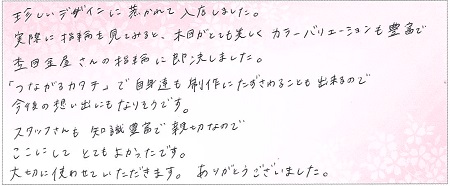 珍しいデザインに惹かれて入店しました。
実際に指輪を見てみると、木目がとても美しく カラーバリエーションも豊富で
杢目金屋さんの指輪に即決しました。
「つながるカタチ」で自身達も制作にたずさわることも出来るので
今後の想い出にもなりそうです。
スタッフさんも 知識豊富で親切なので
ここにして とてもよかったです。
大切に使わせていただきます。 ありがとうございました。